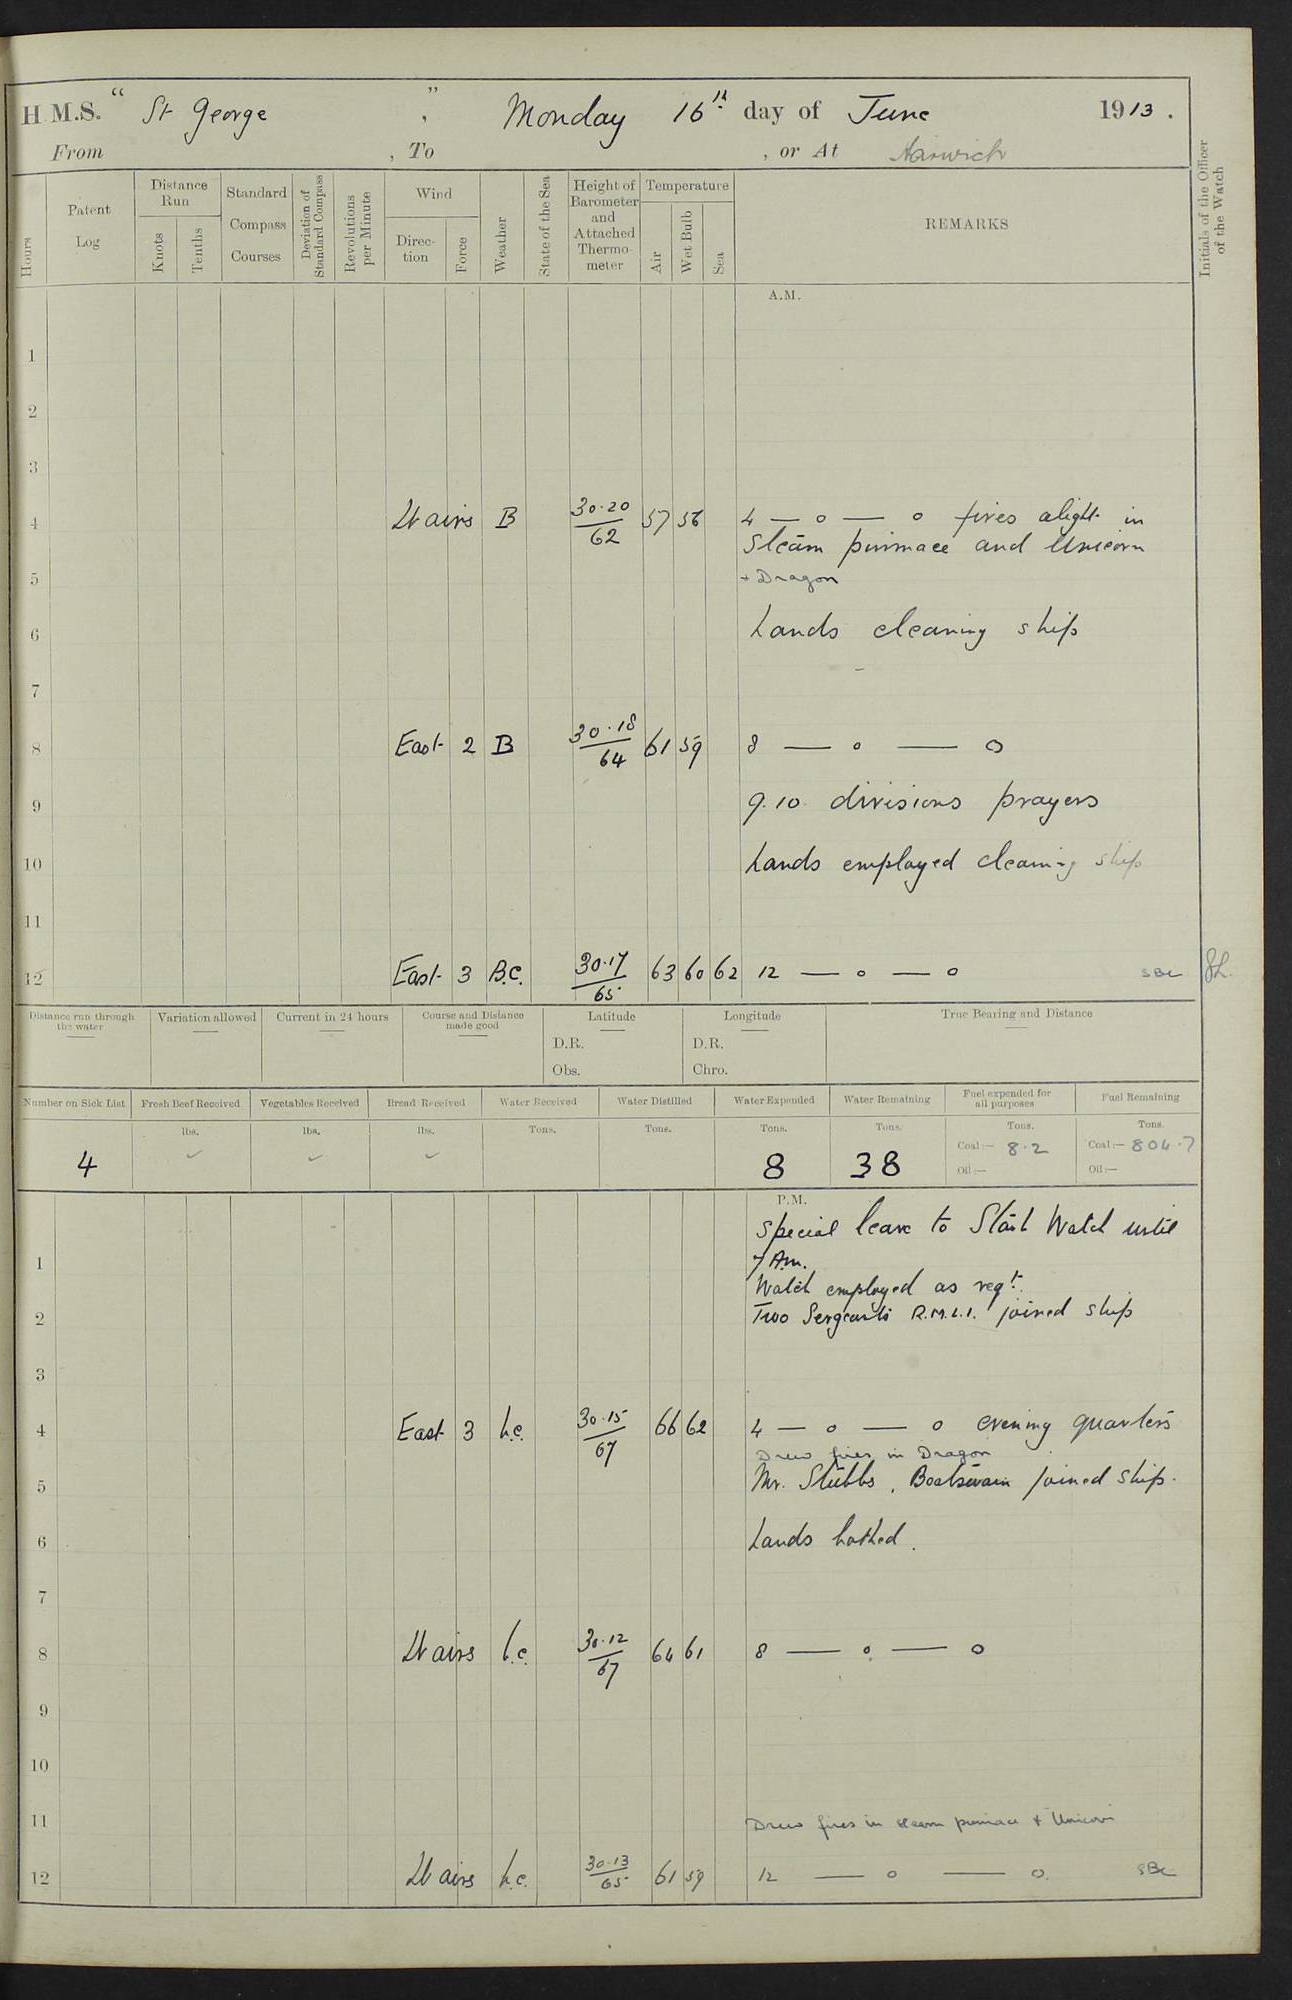 H.M.S. “ St George ” , Monday 16th day of June 1913.
From , To , or At Harwich
Hours
Patent Log
Distance Run
Knots
Tenths
Standard Compass Courses
Deviation of Standard Compass
Revolutions per Minute
Wind
Direction
Force
Weather
State of the Sea
Height of Barometer and Attached Thermometer
Temperature
Air
Wet Bulb
Sea
REMARKS
Initials of the Officer of the Watch
A.M.
1
2
3
4 Lt airs B 30.20/62 57 56 4 — o — o fires alight in
Steam pinnace and Unicorn
5 + Dragon
6 Hands cleaning ship
7
8 East 2 B 30.18/64 61 59 8 — o — o
9 9.10 divisions prayers
10 Hands employed cleaning ship
11
12 East 3 B.C. 30.17/65 63 60 62 12 — o — o SBC
Distance run through the water
Variation allowed
Current in 24 hours
Course and Distance made good
Latitude
D.R.
Obs.
Longitude
D.R.
Chro.
True Bearing and Distance
Number on Sick List
4
Fresh Beef Received
lbs.
Vegetables Received
lbs.
Bread Received
lbs.
Water Received
Tons.
Water Distilled
Tons.
Water Expended
Tons.
8
Water Remaining
Tons.
38
Fuel expended for all purposes
Tons.
Coal:— 8.2
Oil:—
Fuel Remaining
Tons.
Coal:— 804.7
Oil:—
P.M.
Special leave to Starb Watch until
1 7 A.m.
Watch employed as reqt.
2 Two Sergeants R.M.L.I. joined ship
3
4 East 3 b.c. 30.15/67 66 62 4 — o — o evening quarters
Drew fires in Dragon
5 Mr. Stubbs, Boatswain joined ship.
6 Hands bathed.
7
8 Lt airs b.c. 30.12/67 64 61 8 — o — o
9
10
11 Drew fires in steam pinnace + Unicorn
12 Lt airs b.c. 30.13/65 61 59 12 — o — o. SBC